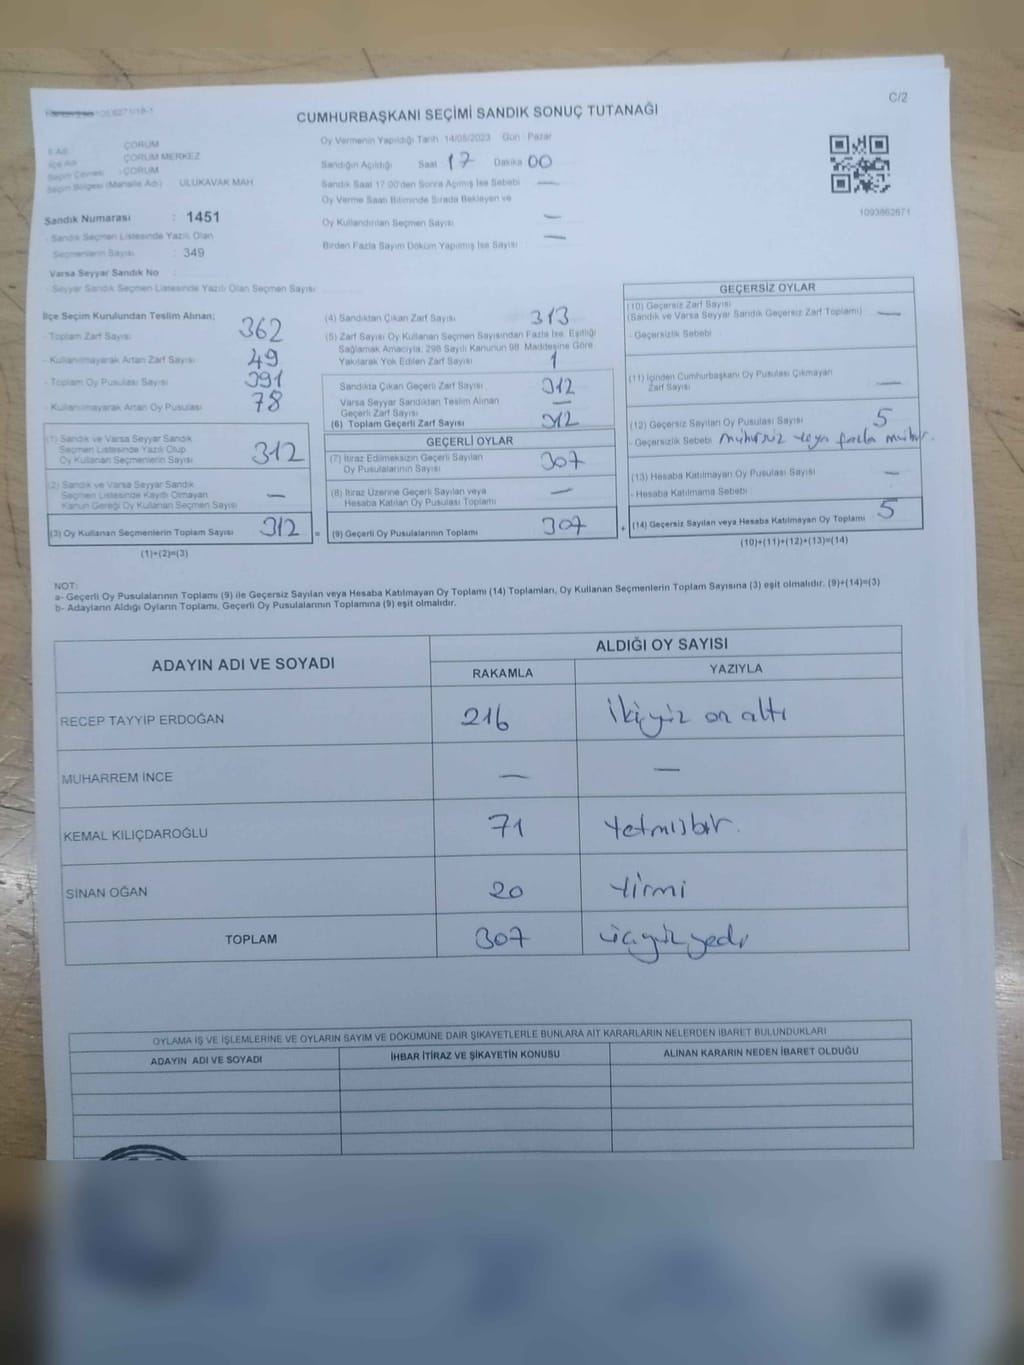 C/2
CUMHURBAŞKANI SEÇİMİ SANDIK SONUÇ TUTANAĞI
İl Adı : ÇORUM
İlçe Adı : ÇORUM MERKEZ
Seçim Çevresi : ÇORUM
Seçim Bölgesi (Mahalle Adı) : ULUKAVAK MAH
Sandık Numarası : 1451
- Sandık Seçmen Listesinde Yazılı Olan
Seçmenlerin Sayısı : 349
Varsa Seyyar Sandık No :
- Seyyar Sandık Seçmen Listesinde Yazılı Olan Seçmen Sayısı:
Oy Vermenin Yapıldığı Tarih : 14/05/2023 Gün : Pazar
Sandığın Açıldığı Saat 17 Dakika 00
Sandık Saat 17:00'den Sonra Açılmış İse Sebebi —
Oy Verme Saati Bitiminde Sırada Bekleyen ve
Oy Kullandırılan Seçmen Sayısı —
Birden Fazla Sayım Döküm Yapılmış İse Sayısı —
1093662671
İlçe Seçim Kurulundan Teslim Alınan;
- Toplam Zarf Sayısı 362
- Kullanılmayarak Artan Zarf Sayısı 49
- Toplam Oy Pusulası Sayısı 391
- Kullanılmayarak Artan Oy Pusulası 78
(1) Sandık ve Varsa Seyyar Sandık
Seçmen Listesinde Yazılı Olup
Oy Kullanan Seçmenlerin Sayısı 312
(2) Sandık ve Varsa Seyyar Sandık
Seçmen Listesinde Kayıtlı Olmayan
Kanun Gereği Oy Kullanan Seçmen Sayısı —
(3) Oy Kullanan Seçmenlerin Toplam Sayısı 312 =
(1)+(2)=(3)
(4) Sandıktan Çıkan Zarf Sayısı 313
(5) Zarf Sayısı Oy Kullanan Seçmen Sayısından Fazla İse, Eşitliği
Sağlamak Amacıyla, 298 Sayılı Kanunun 98. Maddesine Göre
Yakılarak Yok Edilen Zarf Sayısı 1
Sandıkta Çıkan Geçerli Zarf Sayısı 312
Varsa Seyyar Sandıktan Teslim Alınan
Geçerli Zarf Sayısı —
(6) Toplam Geçerli Zarf Sayısı 312
GEÇERLİ OYLAR
(7) İtiraz Edilmeksizin Geçerli Sayılan
Oy Pusulalarının Sayısı 307
(8) İtiraz Üzerine Geçerli Sayılan veya
Hesaba Katılan Oy Pusulası Toplamı —
(9) Geçerli Oy Pusulalarının Toplamı 307 +
GEÇERSİZ OYLAR
(10) Geçersiz Zarf Sayısı
(Sandık ve Varsa Seyyar Sandık Geçersiz Zarf Toplamı) —
- Geçersizlik Sebebi
(11) İçinden Cumhurbaşkanı Oy Pusulası Çıkmayan
Zarf Sayısı —
(12) Geçersiz Sayılan Oy Pusulası Sayısı 5
- Geçersizlik Sebebi mühürsiz veya fazla mühür.
(13) Hesaba Katılmayan Oy Pusulası Sayısı —
- Hesaba Katılmama Sebebi
(14) Geçersiz Sayılan veya Hesaba Katılmayan Oy Toplamı 5
(10)+(11)+(12)+(13)=(14)
NOT:
a- Geçerli Oy Pusulalarının Toplamı (9) ile Geçersiz Sayılan veya Hesaba Katılmayan Oy Toplamı (14) Toplamları, Oy Kullanan Seçmenlerin Toplam Sayısına (3) eşit olmalıdır. (9)+(14)=(3)
b- Adayların Aldığı Oyların Toplamı, Geçerli Oy Pusulalarının Toplamına (9) eşit olmalıdır.
ADAYIN ADI VE SOYADI
ALDIĞI OY SAYISI
RAKAMLA YAZIYLA
RECEP TAYYİP ERDOĞAN 216 ikiyüz on altı
MUHARREM İNCE — —
KEMAL KILIÇDAROĞLU 71 Yetmişbir.
SİNAN OĞAN 20 Yirmi
TOPLAM 307 üçyüzyedi
OYLAMA İŞ VE İŞLEMLERİNE VE OYLARIN SAYIM VE DÖKÜMÜNE DAİR ŞİKAYETLERLE BUNLARA AİT KARARLARIN NELERDEN İBARET BULUNDUKLARI
ADAYIN ADI VE SOYADI İHBAR İTİRAZ VE ŞİKAYETİN KONUSU ALINAN KARARIN NEDEN İBARET OLDUĞU